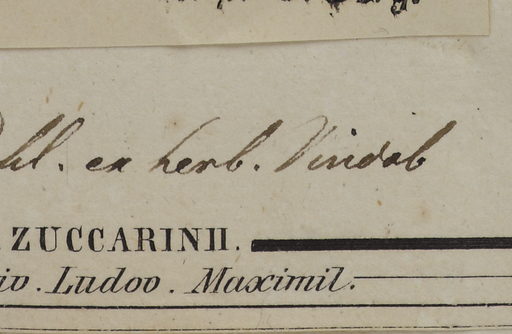 hl. ex herb. Vindob
ZUCCARINII.
iv. Ludov. Maximil.